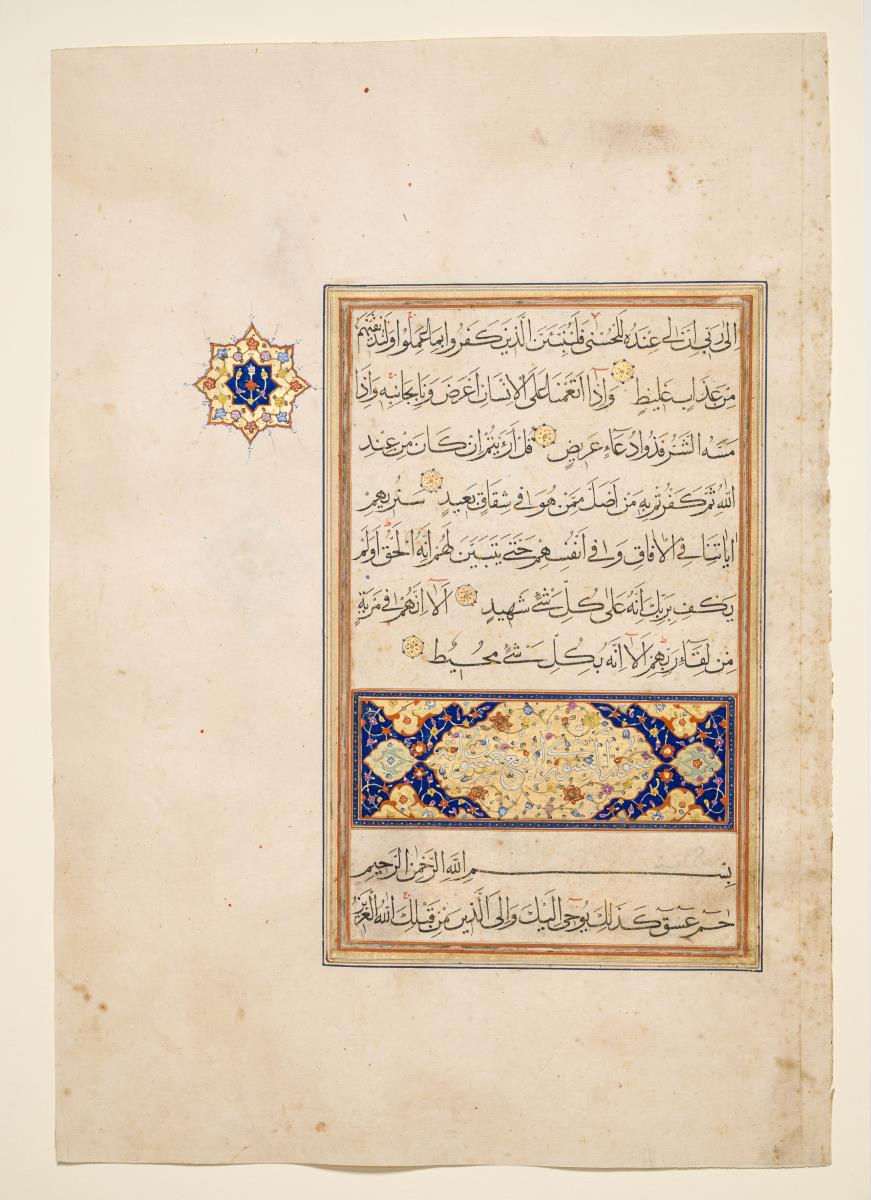 الى ربى ان لى عنده للحسنى فلننبئن الذين كفروا بما عملوا ولنذيقنهم
من عذاب غليظ واذا انعمنا على الانسان اعرض ونا بجانبه واذا
مسه الشر فذو ادعاء عريض قل ارءيتم ان كان من عند
الله ثم كفرتم به من اضل ممن هو فى شقاق بعيد سنريهم
اياتنا فى الافاق وفى انفسهم حتى يتبين لهم انه الحق اولم
يكف بربك انه على كل شئ شهيد الا انهم فى مرية
من لقاء ربهم الا انه بكل شئ محيط
سورة الشورى
بسم الله الرحمن الرحيم
حم عسق كذلك يوحى اليك والى الذين من قبلك الله العزيز